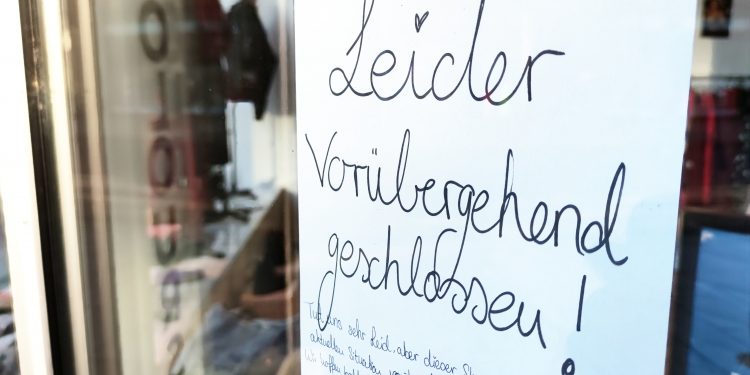 Leider
Vorübergehend
geschlossen!
Tut uns sehr leid, aber dieser
aktuellen Situation
Wir hoffen